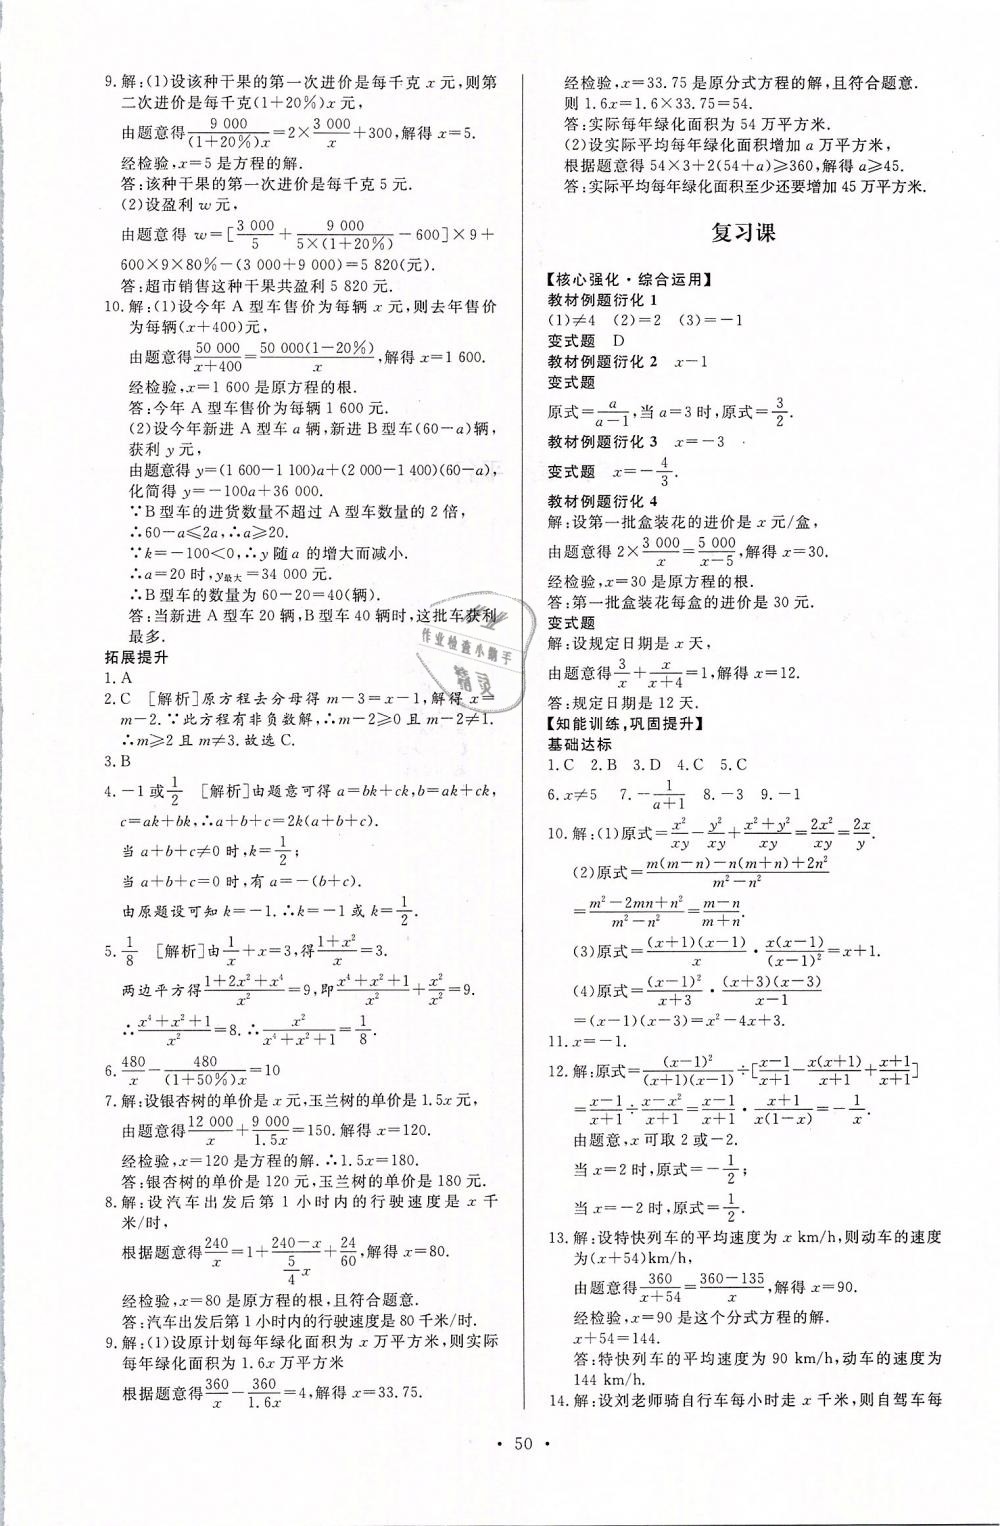 9.解:(1)设该种干果的第一次进价是每千克 x 元,则第
二次进价是每千克(1+20%)x 元,
由题意得9 000/(1+20%)x=2×3 000/x+300,解得 x=5.
经检验,x=5 是方程的解.
答:该种干果的第一次进价是每千克 5 元.
(2)设盈利 w 元,
由题意得 w=[3 000/5+9 000/5×(1+20%)-600]×9+
600×9×80%-(3 000+9 000)=5 820(元).
答:超市销售这种干果共盈利 5 820 元.
10.解:(1)设今年 A 型车售价为每辆 x 元,则去年售价
为每辆(x+400)元,
由题意得50 000/x+400=50 000(1-20%)/x,解得 x=1 600.
经检验,x=1 600 是原方程的根.
答:今年 A 型车售价为每辆 1 600 元.
(2)设今年新进 A 型车 a 辆,新进 B 型车(60-a)辆,
获利 y 元,
由题意得 y=(1 600-1 100)a+(2 000-1 400)(60-a),
化简得 y=-100a+36 000.
∵B 型车的进货数量不超过 A 型车数量的 2 倍,
∴60-a≤2a,∴a≥20.
∵k=-100<0,∴y 随 a 的增大而减小.
∴a=20 时,y最大=34 000 元.
∴B 型车的数量为 60-20=40(辆).
答:当新进 A 型车 20 辆,B 型车 40 辆时,这批车获利
最多.
拓展提升
1.A
2.C [解析]原方程去分母得 m-3=x-1,解得 x=
m-2.∵此方程有非负数解,∴m-2≥0 且 m-2≠1.
∴m≥2 且 m≠3.故选 C.
3.B
4.-1或1/2 [解析]由题意可得 a=bk+ck,b=ak+ck,
c=ak+bk,∴a+b+c=2k(a+b+c).
当 a+b+c≠0 时,k=1/2;
当 a+b+c=0 时,有 a=-(b+c).
由原题设可知 k=-1.∴k=-1 或 k=1/2.
5.1/8 [解析]由1/x+x=3,得1+x²/x=3.
两边平方得1+2x²+x⁴/x²=9,即x⁴+x²+1/x²+x²/x²=9.
∴x⁴+x²+1/x²=8.∴x²/x⁴+x²+1=1/8.
6.480/x-480/(1+50%)x=10
7.解:设银杏树的单价是 x 元,玉兰树的单价是 1.5x 元,
由题意得12 000/x+9 000/1.5x=150.解得 x=120.
经检验,x=120 是方程的解.∴1.5x=180.
答:银杏树的单价是 120 元,玉兰树的单价是 180 元.
8.解:设汽车出发后第 1 小时内的行驶速度是 x 千
米/时,
根据题意得240/x=1+240-x/(5/4)x+24/60,解得 x=80.
经检验,x=80 是原方程的根,且符合题意.
答:汽车出发后第 1 小时内的行驶速度是 80 千米/时.
9.解:(1)设原计划每年绿化面积为 x 万平方米,则实际
每年绿化面积为 1.6x 万平方米
根据题意得360/x-360/1.6x=4,解得 x=33.75.
经检验,x=33.75 是原分式方程的解,且符合题意.
则 1.6x=1.6×33.75=54.
答:实际每年绿化面积为 54 万平方米.
(2)设实际平均每年绿化面积增加 a 万平方米,
根据题意得 54×3+2(54+a)≥360,解得 a≥45.
答:实际平均每年绿化面积至少还要增加 45 万平方米.
复习课
【核心强化·综合运用】
教材例题衍化 1
(1)≠4 (2)=2 (3)=-1
变式题 D
教材例题衍化 2 x-1
变式题
原式=a/a-1,当 a=3 时,原式=3/2.
教材例题衍化 3 x=-3
变式题 x=-4/3.
教材例题衍化 4
解:设第一批盒装花的进价是 x 元/盒,
由题意得 2×3 000/x=5 000/x-5,解得 x=30.
经检验,x=30 是原方程的根.
答:第一批盒装花每盒的进价是 30 元.
变式题
解:设规定日期是 x 天,
由题意得3/x+x/x+4=1,解得 x=12.
答:规定日期是 12 天.
【知能训练,巩固提升】
基础达标
1.C 2.B 3.D 4.C 5.C
6.x≠5 7.-1/a+1 8.-3 9.-1
10.解:(1)原式=x²/xy-y²/xy+x²+y²/xy=2x²/xy=2x/y.
(2)原式=m(m-n)-n(m+n)+2n²/m²-n²
=m²-2mn+n²/m²-n²=m-n/m+n.
(3)原式=(x+1)(x-1)/x·x(x-1)/(x-1)²=x+1.
(4)原式=(x-1)²/x+3·(x+3)(x-3)/x-1
=(x-1)(x-3)=x²-4x+3.
11.x=-1.
12.解:原式=(x-1)²/(x+1)(x-1)÷[x-1/x+1-x(x+1)/x+1+x+1/x+1]
=x-1/x+1÷x-x²/x+1=x-1/x+1·x+1/x(1-x)=-1/x
由题意,x 可取 2 或-2.
当 x=2 时,原式=-1/2;
当 x=-2 时,原式=1/2.
13.解:设特快列车的平均速度为 x km/h,则动车的速度
为(x+54)km/h,
由题意得360/x+54=360-135/x,解得 x=90.
经检验,x=90 是这个分式方程的解.
x+54=144.
答:特快列车的平均速度为 90 km/h,动车的速度为
144 km/h.
14.解:设刘老师骑自行车每小时走 x 千米,则自驾车每
·50·
作业检查小助手